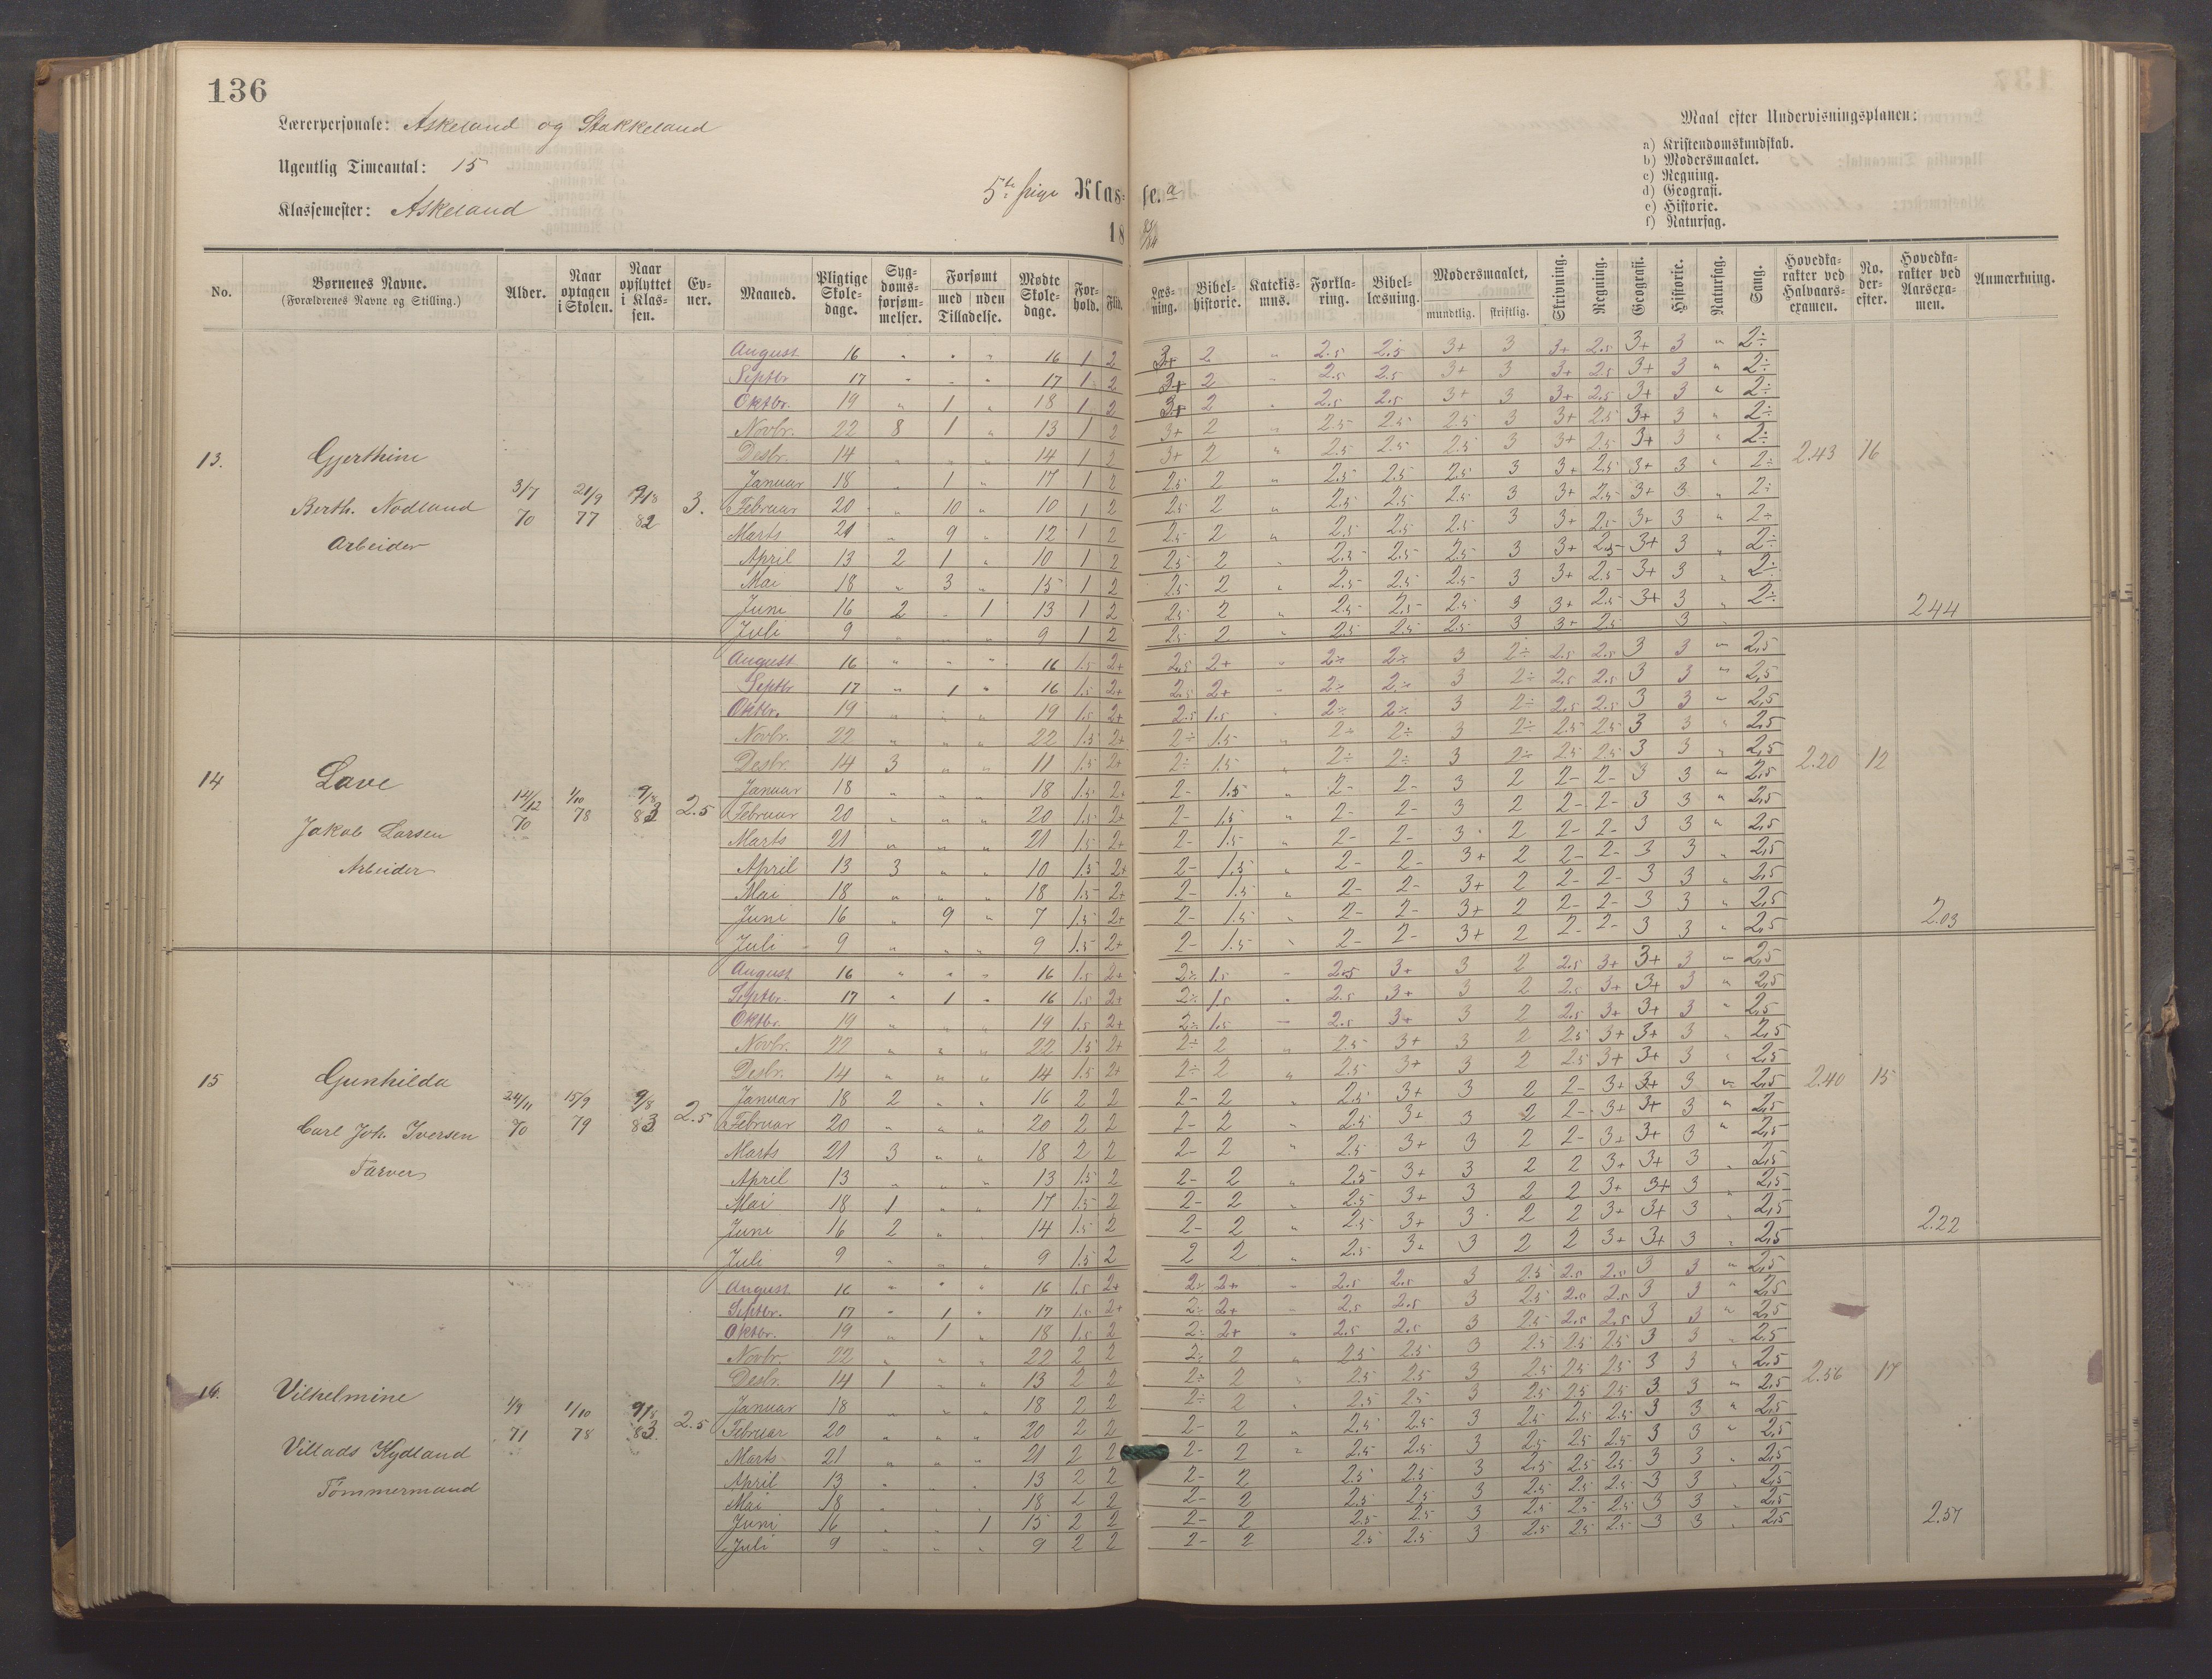 136
Lærerpersonale: Askeland og Stakkeland
Ugentlig Timeantal: 15
Klassemester: Askeland
5te pige Klas- se. a
18 83/84
Maal efter Undervisningsplanen:
a) Kristendomskundskab.
b) Modersmaalet.
c) Regning.
d) Geografi.
e) Historie.
f) Naturfag.
No. Børnenes Navne. (Forældrenes Navne og Stilling.) Alder. Naar optagen i Skolen. Naar opflyttet i Klassen. Evner. Maaned. Pligtige Skoledage. Sygdomsforsømmelser. Forsømt med uden Tilladelse. Mødte Skoledage. Forhold. Flid. Læsning. Bibelhistorie. Katekismus. Forklaring. Bibellæsning. Modersmaalet, mundtlig. skriftlig. Skrivning. Regning. Geografi. Historie. Naturfag. Sang. Hovedkarakter ved Halvaarsexamen. No. derefter. Hovedkarakter ved Aarsexamen. Anmærkning.
13. Gjerthine
Berth. Nodland
Arbeider
3/7 70 21/9 77 9/8 82 3.
August 16 " " " 16 1 2 3+ 2 " 2.5 2.5 3+ 3 3+ 2.5 3+ 3 " 2÷
Septbr 17 " " " 17 1 2 3+ 2 " 2.5 2.5 3+ 3 3+ 2.5 3+ 3 " 2÷
Oktbr. 19 " 1 " 18 1 2 3+ 2 " 2.5 2.5 3+ 3 3+ 2.5 3+ 3 " 2÷
Novbr. 22 8 1 " 13 1 2 3+ 2 " 2.5 2.5 2.5 3 3+ 2.5 3+ 3 " 2÷
Desbr. 14 " " " 14 1 2 3+ 2 " 2.5 2.5 2.5 3 3+ 2.5 3+ 3 " 2÷ 2.43 16
Januar 18 " 1 " 17 1 2 2.5 2 " 2.5 2.5 2.5 3 3+ 2.5 3+ 3 " 2÷
Februar 20 " 10 " 10 1 2 2.5 2 " 2.5 2.5 2.5 3 3+ 2.5 3+ 3 " 2÷
Marts 21 " 9 " 12 1 2 2.5 2 " 2.5 2.5 2.5 3 3+ 2.5 3+ 3 " 2÷
April 13 2 1 " 10 1 2 2.5 2 " 2.5 2.5 2.5 3 3+ 2.5 3+ 3 " 2÷
Mai 18 " 3 " 15 1 2 2.5 2 " 2.5 2.5 2.5 3 3+ 2.5 3+ 3 " 2÷
Juni 16 2 " 1 13 1 2 2.5 2 " 2.5 2.5 2.5 3 3+ 2.5 3+ 3 " 2÷ 2.44
Juli 9 " " " 9 1 2 2.5 2 " 2.5 2.5 2.5 3 3+ 2.5 3 "
14 Lave
Jakob Larsen
Arbeider
14/12 70 1/10 78 9/8 83 2.5
August 16 " " " 16 1.5 2+ 2.5 2+ " 2÷ 2÷ 3 2÷ 2.5 2.5 3 3 " 2,5
Septbr 17 " 1 " 16 1.5 2+ 2.5 2+ " 2÷ 2÷ 3 2÷ 2.5 2.5 3 3 " 2,5
Oktbr. 19 " " " 19 1.5 2+ 2.5 1.5 " 2÷ 2÷ 3 2÷ 2.5 2.5 3 3 " 2,5
Novbr. 22 " " " 22 1.5 2+ 2÷ 1.5 " 2÷ 2÷ 3 2÷ 2.5 2.5 3 3 " 2,5
Desbr. 14 3 " " 11 1.5 2+ 2÷ 1.5 " 2÷ 2÷ 3 2÷ 2.5 2.5 3 3 " 2,5 2.20 12
Januar 18 " " " 18 1.5 2+ 2- 1.5 " 2- 2- 3 2 2- 2- 3 3 " 2,5
Februar 20 " " " 20 1.5 2+ 2- 1.5 " 2- 2- 3 2 2- 2- 3 3 " 2,5
Marts 21 " " " 21 1.5 2+ 2- 1.5 " 2- 2- 3 2 2- 2- 3 3 " 2,5
April 13 3 " " 10 1.5 2+ 2- 1.5 " 2- 2- 3+ 2 2- 2- 3 3 " 2,5
Mai 18 " " " 18 1.5 2+ 2- 1.5 " 2- 2- 3+ 2 2- 2- 3 3 " 2,5
Juni 16 " 9 " 7 1.5 2+ 2- 1.5 " 2- 2- 3+ 2 2- 2- 3 3 " 2,5 2.03
Juli 9 " " " 9 1.5 2+ 2- 1.5 " 2- 2- 3+ 2 2- 2- 3 3 " 2,5
15 Gunhilda
Carl Joh. Iversen
Farver
24/11 70 15/9 79 9/8 83 2.5
August 16 " " " 16 1.5 2+ 2÷ 1.5 " 2.5 3+ 3 2 2.5 3+ 3+ 3 " 2,5
Septbr. 17 " 1 " 16 1.5 2+ 2÷ 1.5 " 2.5 3+ 3 2 2.5 3+ 3+ 3 " 2,5
Oktbr. 19 " " " 19 1.5 2+ 2÷ 1.5 " 2.5 3+ 3 2 2.5 3+ 3+ 3 " 2,5
Novbr. 22 " " " 22 1.5 2+ 2÷ 2 " 2.5 3+ 3 2 2.5 3+ 3+ 3 " 2,5
Desbr. 14 " " " 14 1.5 2+ 2÷ 2 " 2.5 3+ 3 2 2.5 3+ 3+ 3 " 2,5 2.40 15
Januar 18 2 " " 16 2 2 2- 2 " 2.5 3+ 3 2 2- 3+ 3+ 3 " 2,5
Februar 20 " " " 20 2 2 2- 2 " 2.5 3+ 3 2 2- 3+ 3+ 3 " 2,5
Marts 21 3 " " 18 2 2 2- 2 " 2.5 3+ 3 2 2- 3+ 3+ 3 " 2,5
April 13 " " " 13 1.5 2 2- 2 " 2.5 3+ 3 2 2 3+ 3+ 3 " 2,5
Mai 18 1 " " 17 1.5 2 2- 2 " 2.5 3+ 3 2 2 3+ 3+ 3 " 2,5
Juni 16 2 " " 14 1.5 2 2- 2 " 2.5 3+ 3 2 2 3+ 3+ 3 " 2,5 2.22
Juli 9 " " " 9 1.5 2 2 2 " 2.5 3+ 3 2 2 3+ 3+ 3 " 2,5
16. Vilhelmine
Villads Kydland
Tømmermand
1/9 71 1/10 78 9/8 83 2.5
August 16 " " " 16 1.5 2+ 2÷ 2+ " 2.5 2.5 3 2.5 2.5 2.5 3 3 " 2,5
Septbr. 17 " 1 " 17 1.5 2+ 2÷ 2+ " 2.5 2.5 3 2.5 2.5 2.5 3 3 " 2,5
Oktbr. 19 " 1 " 18 1.5 2 2÷ 2+ " 2.5 2.5 3 2.5 2.5 2.5 3 3 " 2,5
Novbr. 22 " " " 22 2 2 2÷ 2 " 2.5 2.5 3 2.5 2.5 2.5 3 3 " 2,5
Desbr. 14 1 " " 13 2 2 2÷ 2 " 2.5 2.5 3 2.5 2.5 2.5 3 3 " 2,5 2.56 17
Januar 18 " " " 18 2 2 2÷ 2 " 2.5 2.5 3 2.5 2.5 2.5 3 3 " 2,5
Februar 20 " " " 20 2 2 2- 2 " 2.5 2.5 3 2.5 2.5 2.5 3 3 " 2,5
Marts 21 " " " 21 2 2 2- 2 " 2.5 2.5 3 2.5 2.5 2.5 3 3 " 2,5
April 13 " " " 13 2 2 2- 2 2.5 2.5 3 2.5 2.5 2.5 3 3 " 2,5
Mai 18 " " " 18 2 2 2- 2 2.5 2.5 3 2.5 2.5 2.5 3 3 " 2,5
Juni 16 " " 1 15 2 2 2- 2 2.5 2.5 3 2.5 2.5 2.5 3 3 " 2,5 2.57
Juli 9 " " " 9 2 2 2- 2 2.5 2.5 3 2.5 2.5 2.5 3 3 " 2,5